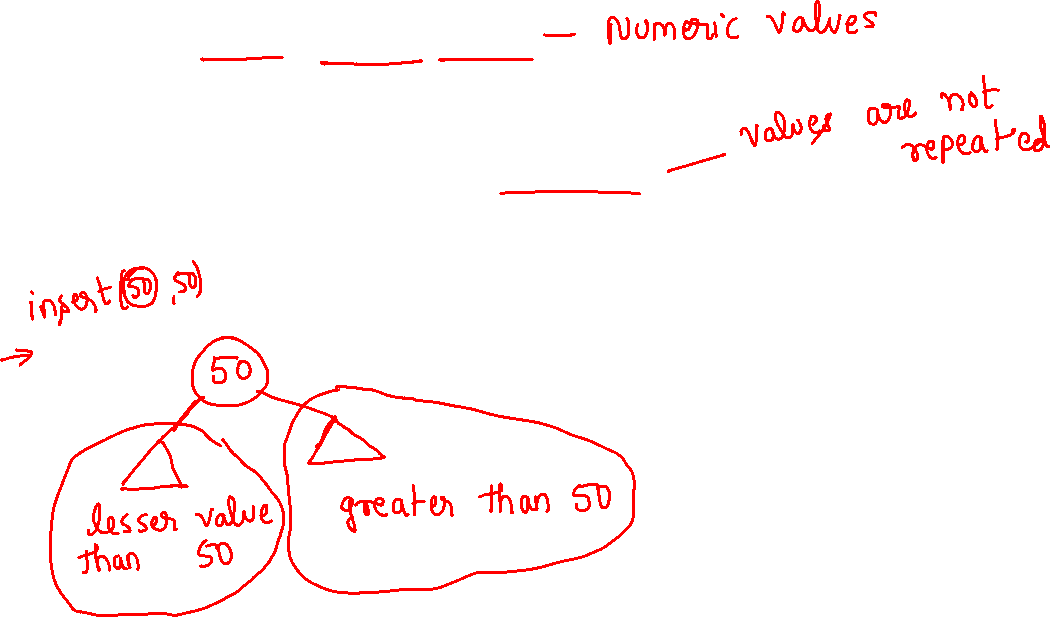 — Numeric values
values are not
repeated
insert(50, 50)
50
lesser value
than 50
greater than 50